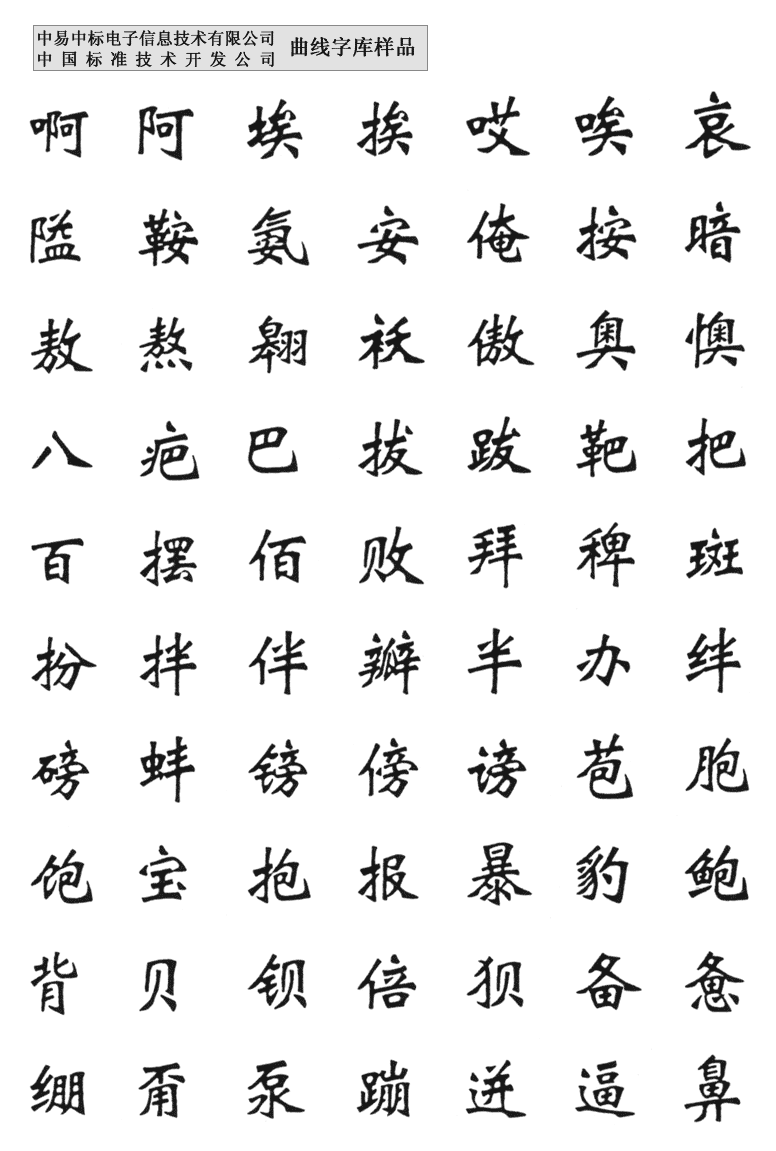 中易中标电子信息技术有限公司
中国标准技术开发公司
曲线字库样品
啊 阿 埃 挨 哎 唉 哀
隘 鞍 氨 安 俺 按 暗
敖 熬 翱 袄 傲 奥 懊
八 疤 巴 拔 跋 靶 把
百 摆 佰 败 拜 稗 斑
扮 拌 伴 瓣 半 办 绊
磅 蚌 镑 傍 谤 苞 胞
饱 宝 抱 报 暴 豹 鲍
背 贝 钡 倍 狈 备 惫
绷 甭 泵 蹦 迸 逼 鼻